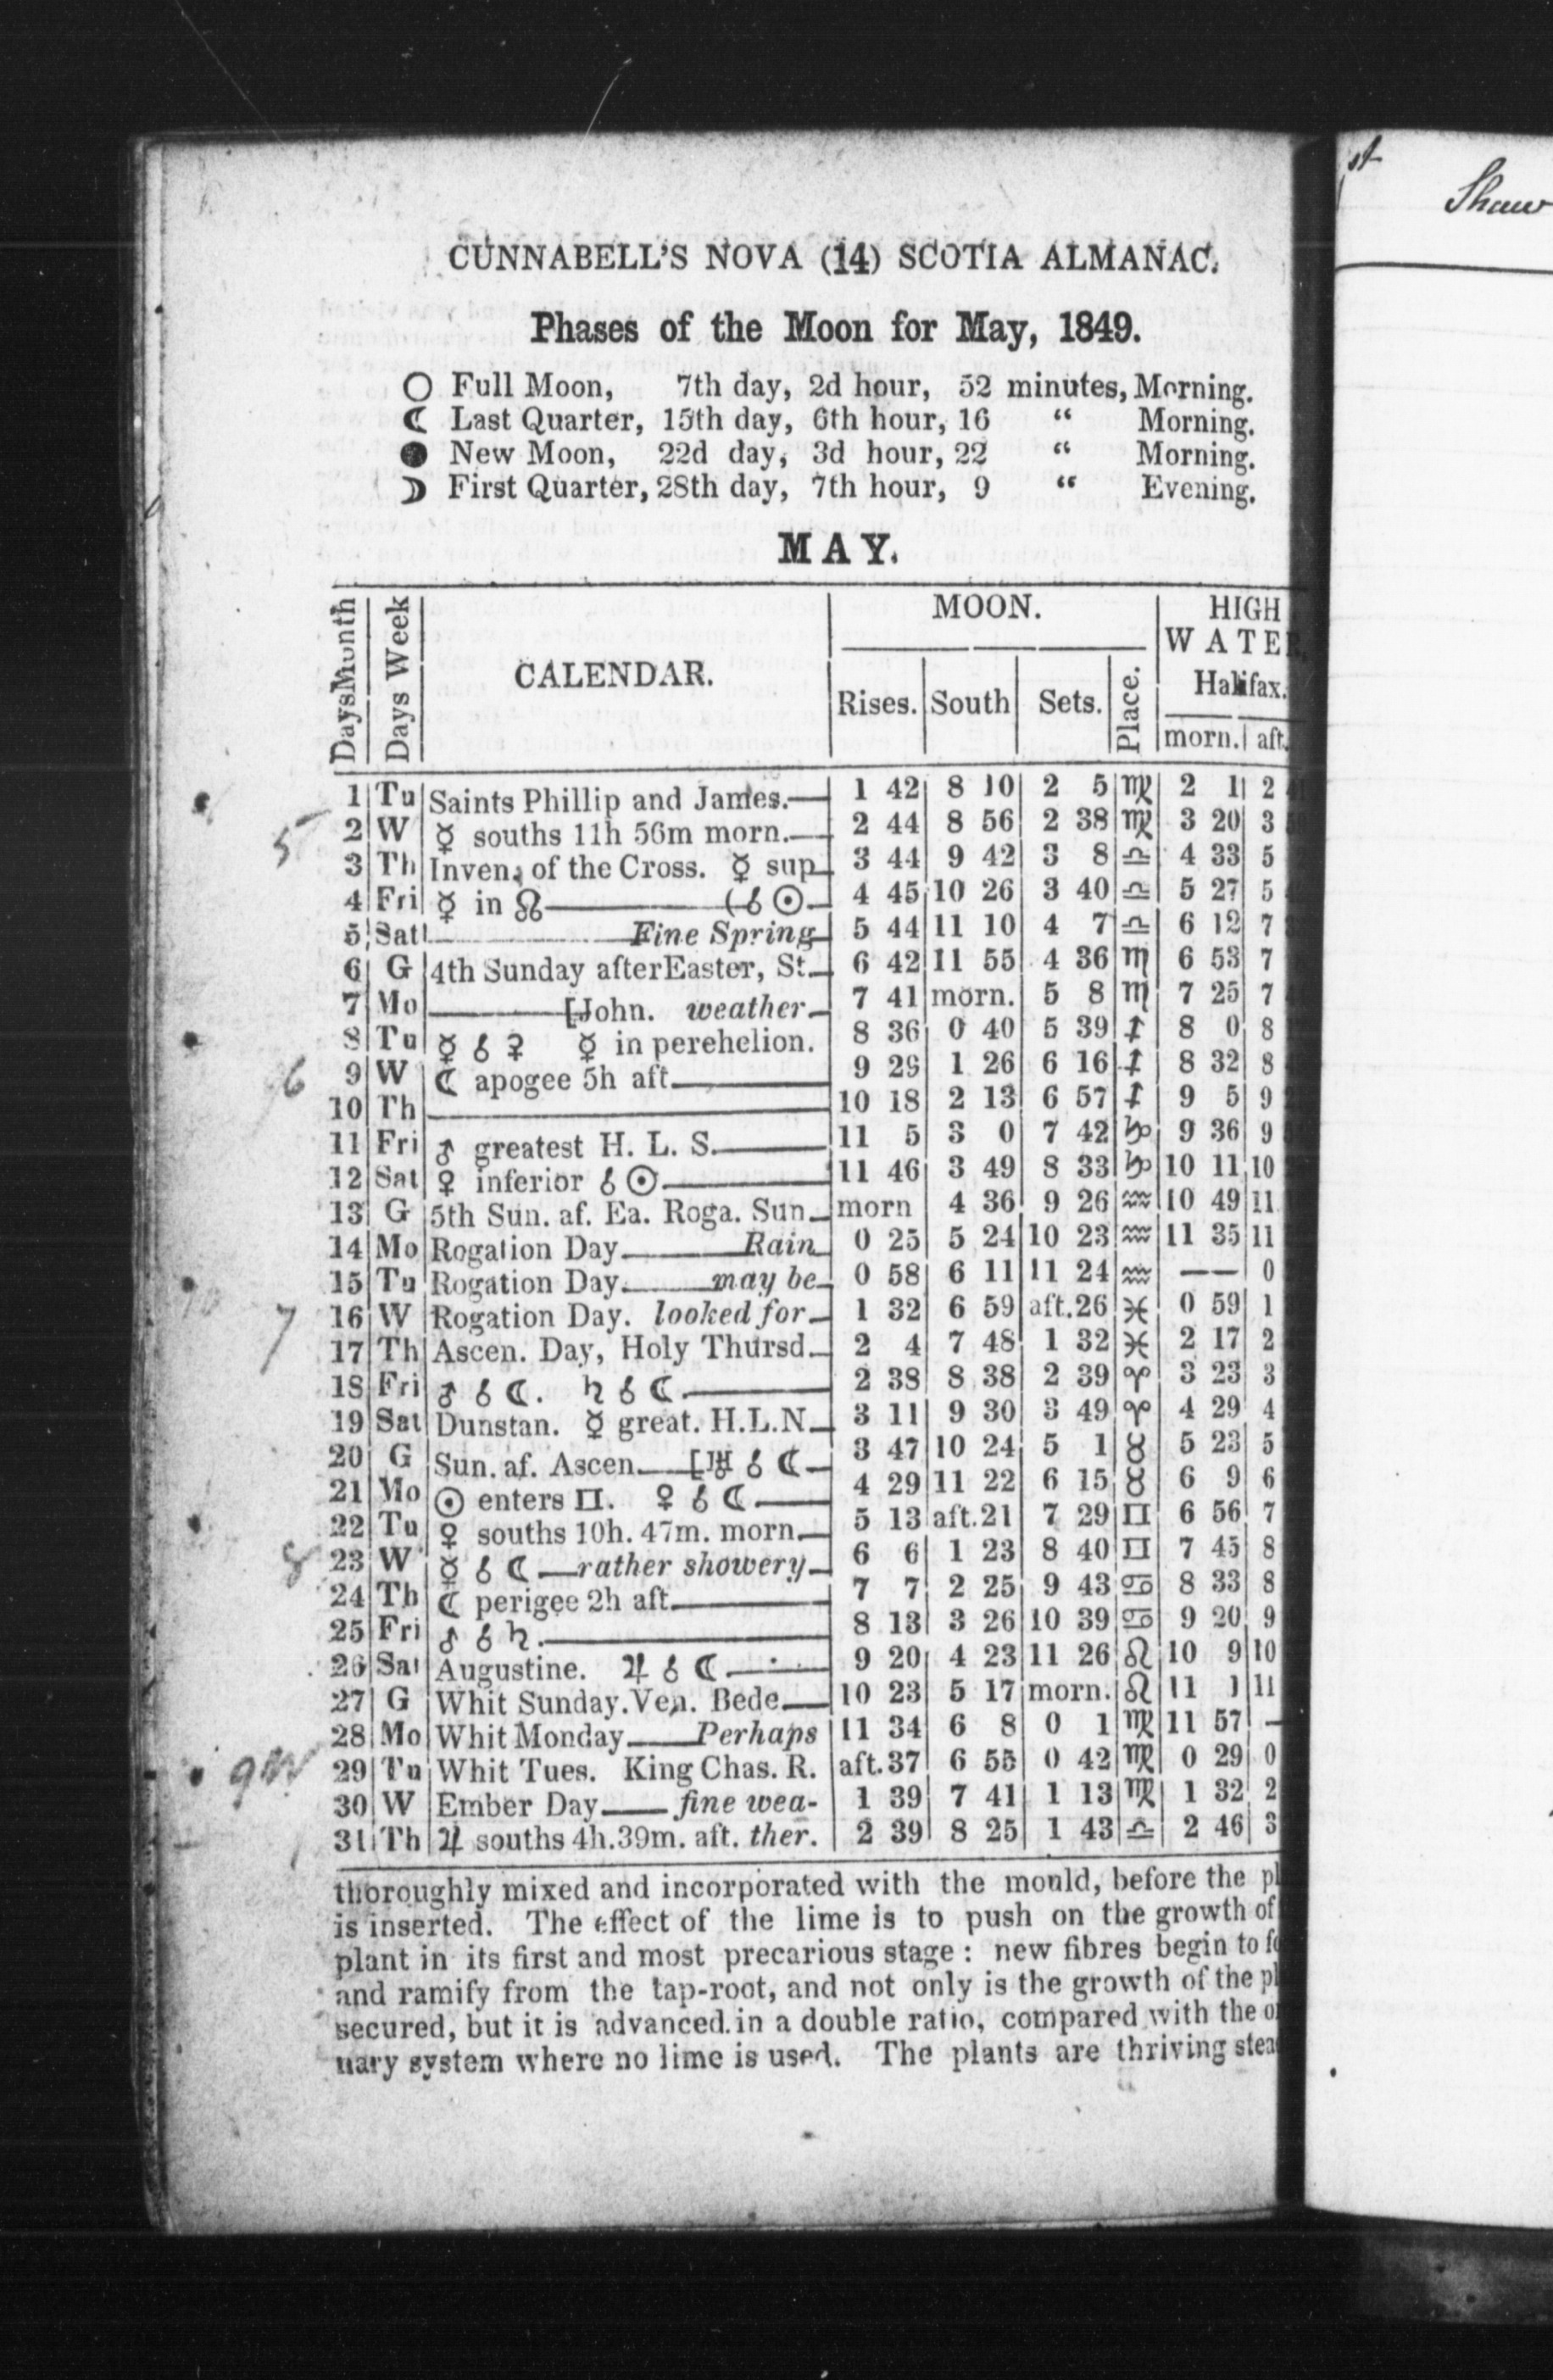 st
Shaw
CUNNABELL'S NOVA (14) SCOTIA ALMANAC.
Phases of the Moon for May, 1849.
○ Full Moon, 7th day, 2d hour, 52 minutes, Morning.
☾ Last Quarter, 15th day, 6th hour, 16 “ Morning.
● New Moon, 22d day, 3d hour, 22 “ Morning.
☽ First Quarter, 28th day, 7th hour, 9 “ Evening.
MAY.
Days Month | Days Week | CALENDAR. | MOON. | HIGH WATER, Halifax.
Rises. | South | Sets. | Place. | morn. | aft.
1 Tu Saints Phillip and James.— 1 42 8 10 2 5 ♍ 2 1 2
5 2 W ☿ souths 11h 56m morn.— 2 44 8 56 2 38 ♍ 3 20 3
3 Th Inven. of the Cross. ☿ sup 3 44 9 42 3 8 ♎ 4 33 5
4 Fri ☿ in ☊——(☌ ☉ 4 45 10 26 3 40 ♎ 5 27 5
5 Sat ——Fine Spring 5 44 11 10 4 7 ♎ 6 12 7
6 G 4th Sunday after Easter, St. 6 42 11 55 4 36 ♏ 6 53 7
7 Mo ——[John. weather 7 41 morn. 5 8 ♏ 7 25 7
8 Tu ☿ ☌ ♀ ☿ in perehelion. 8 36 0 40 5 39 ♐ 8 0 8
6 9 W ☾ apogee 5h aft.—— 9 29 1 26 6 16 ♐ 8 32 8
10 Th —— 10 18 2 13 6 57 ♐ 9 5 9
11 Fri ♂ greatest H. L. S.—— 11 5 3 0 7 42 ♑ 9 36 9
12 Sat ♀ inferior ☌ ☉—— 11 46 3 49 8 33 ♑ 10 11 10
13 G 5th Sun. af. Ea. Roga. Sun morn 4 36 9 26 ♒ 10 49 11
14 Mo Rogation Day.——Rain 0 25 5 24 10 23 ♒ 11 35 11
15 Tu Rogation Day.——may be 0 58 6 11 11 24 ♒ —— 0
7 16 W Rogation Day. looked for 1 32 6 59 aft.26 ♓ 0 59 1
17 Th Ascen. Day, Holy Thursd. 2 4 7 48 1 32 ♓ 2 17 2
18 Fri ♂ ☌ ☾. ♄ ☌ ☾.—— 2 38 8 38 2 39 ♈ 3 23 3
19 Sat Dunstan. ☿ great. H.L.N 3 11 9 30 3 49 ♈ 4 29 4
20 G Sun. af. Ascen.——[♅ ☌ ☾ 3 47 10 24 5 1 ♉ 5 23 5
21 Mo ☉ enters ♊. ♀ ☌ ☾.—— 4 29 11 22 6 15 ♉ 6 9 6
22 Tu ♀ souths 10h. 47m. morn. 5 13 aft.21 7 29 ♊ 6 56 7
8 23 W ☿ ☌ ☾.—rather showery 6 6 1 23 8 40 ♊ 7 45 8
24 Th ☾ perigee 2h aft.—— 7 7 2 25 9 43 ♋ 8 33 8
25 Fri ♂ ☌ ♄.—— 8 13 3 26 10 39 ♋ 9 20 9
26 Sat Augustine. ♃ ☌ ☾.—— 9 20 4 23 11 26 ♌ 10 9 10
27 G Whit Sunday. Ven. Bede.— 10 23 5 17 morn. ♌ 11 1 11
28 Mo Whit Monday——Perhaps 11 34 6 8 0 1 ♍ 11 57 —
9 29 Tu Whit Tues. King Chas. R. aft.37 6 55 0 42 ♍ 0 29 0
30 W Ember Day—— fine wea- 1 39 7 41 1 13 ♍ 1 32 2
31 Th ♃ souths 4h.39m. aft. ther. 2 39 8 25 1 43 ♎ 2 46 3
thoroughly mixed and incorporated with the mould, before the pl
is inserted. The effect of the lime is to push on the growth of
plant in its first and most precarious stage : new fibres begin to fo
and ramify from the tap-root, and not only is the growth of the pl
secured, but it is advanced in a double ratio, compared with the o
nary system where no lime is used. The plants are thriving stea